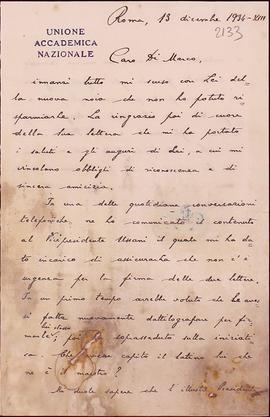 Roma, 13 dicembre 1934-XIII
2133
UNIONE
ACCADEMICA
NAZIONALE
Caro Di Marco,
innanzi tutto mi scuso con Lei del-
la nuova noia che non ho potuto ri-
sparmiarle. La ringrazio poi di cuore
della sua lettera che mi ha portato
i saluti e gli auguri di Lei, a cui mi
vincolano obblighi di riconoscenza e di
sincera amicizia.
In una delle quotidiane conversazioni
telefoniche ne ho comunicato il contenuto
al Vicepresidente Ussani il quale mi ha da-
to incarico di assicurarla che non c'è
urgenza per la firma delle due lettere.
In un primo tempo avrebbe voluto che le aves-
si fatte nuovamente dattilografare per fir-
marle; poi ha soprasseduto sulla iniziati-
va. Chi capirà il latino lui che
ne è maestro?
Mi duole sapere che l'Illustre Presidente